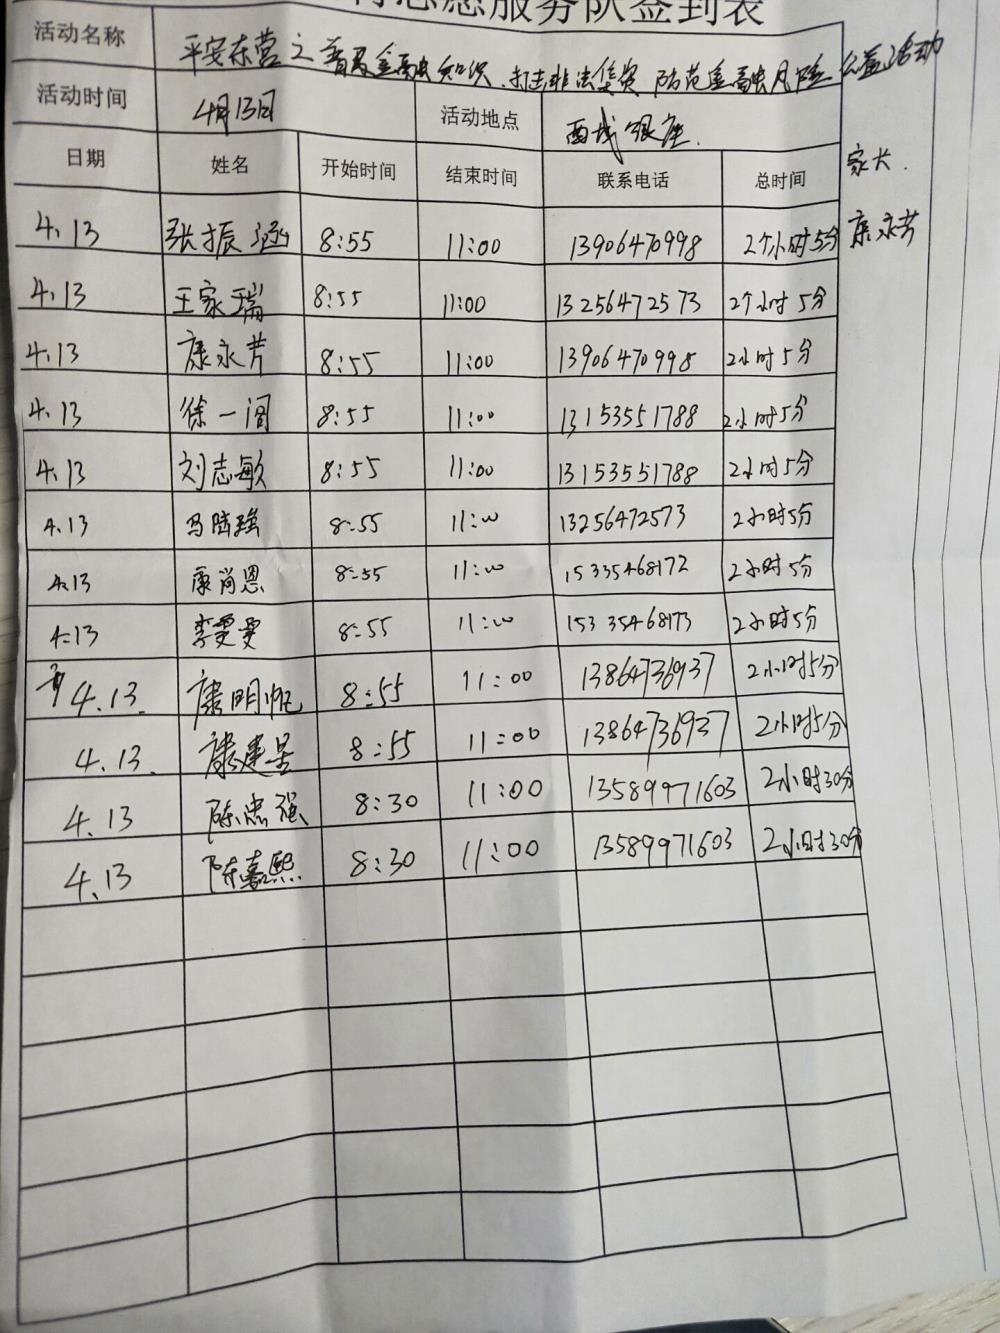 志愿服务队签到表
活动名称 平安东营之普及金融知识、打击非法集资 防范金融风险 公益活动
活动时间 4月13日 活动地点 西城银座
日期 姓名 开始时间 结束时间 联系电话 总时间 家长.
4.13 张振涵 8:55 11:00 13906470998 2个小时5分 康永芳
4.13 王家瑞 8:55 11:00 13256472573 2个小时5分
4.13 康永芳 8:55 11:00 13906470998 2小时5分
4.13 徐一阁 8:55 11:00 13153551788 2小时5分
4.13 刘志敏 8:55 11:00 13153551788 2小时5分
4.13 马陆强 8:55 11:00 13256472573 2小时5分
4.13 康尚恩 8:55 11:00 15335468172 2小时5分
4.13 李雯雯 8:55 11:00 15335468173 2小时5分
4.13. 康明帆 8:55 11:00 13864736937 2小时5分
4.13. 康建星 8:55 11:00 13864736937 2小时5分
4.13 陈忠强 8:30 11:00 13589971603 2小时30分
4.13 陈嘉熙 8:30 11:00 13589971603 2小时30分